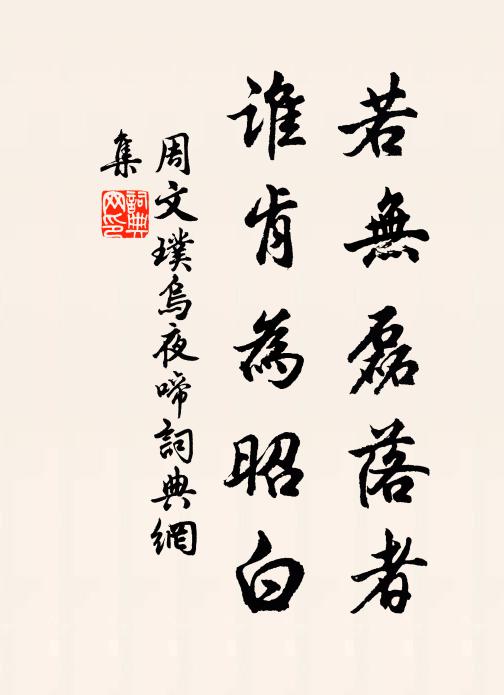 若無磊落者
誰肯為昭白
周文璞烏夜啼詞典網
集
詞典
网印